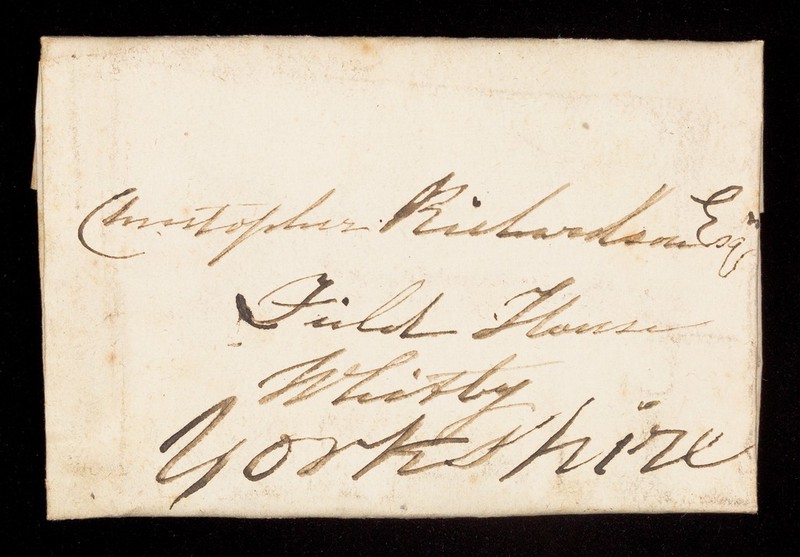 Christopher Richardson Esqr
Field House
Whitby
Yorkshire